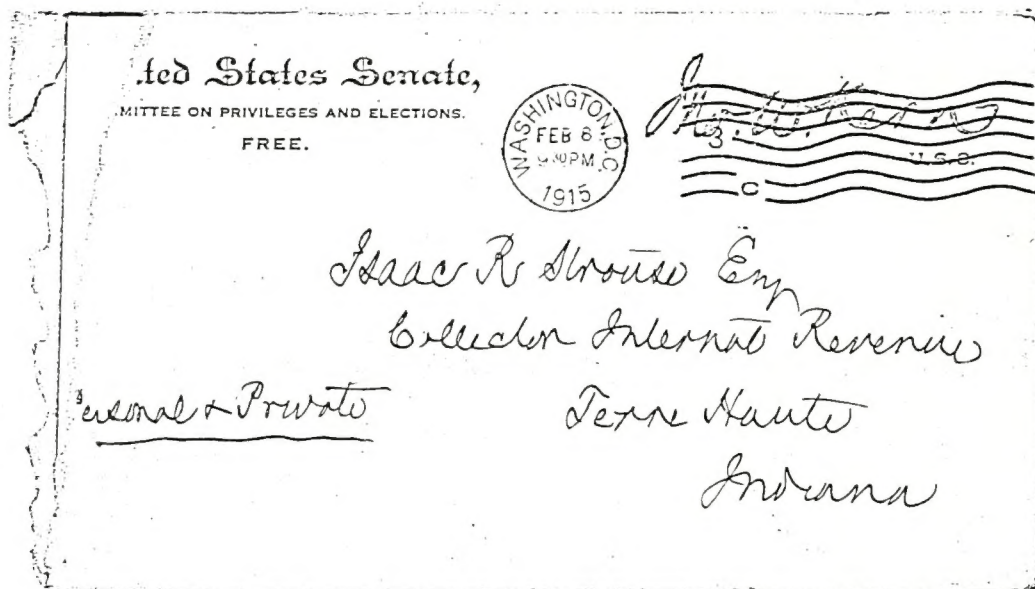 ted States Senate,
MITTEE ON PRIVILEGES AND ELECTIONS.
FREE.
WASHINGTON, D.C.
FEB 6
PM
1915
3
C
U.S.S.
Isaac R Strouse Esq
Collector Internal Revenue
Personal & Private
Terre Haute
Indiana